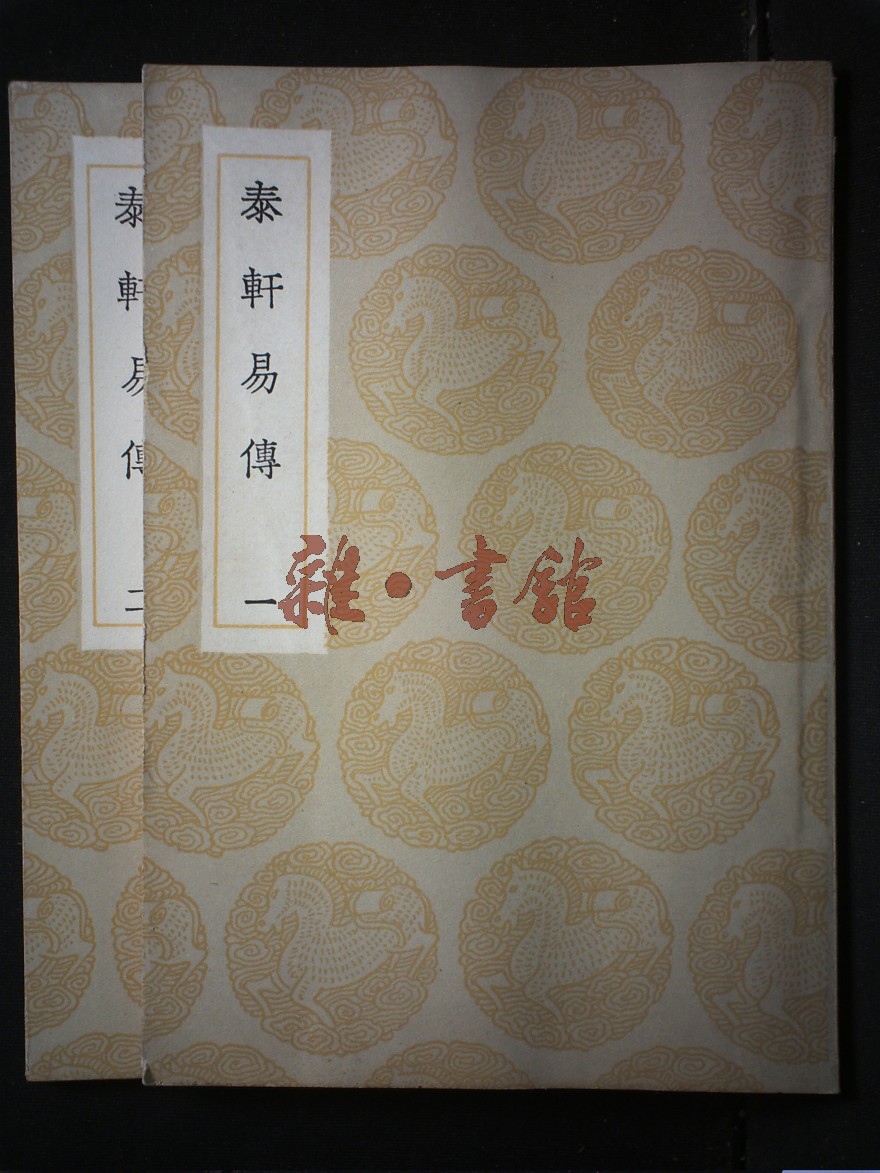 泰軒易傳 一
泰軒易傳 二
雜·書館